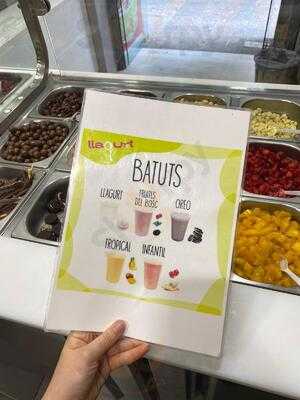 llagurt
BATUTS
LLAGURT
FRUITS
DEL BOSC
OREO
TROPICAL
INFANTIL